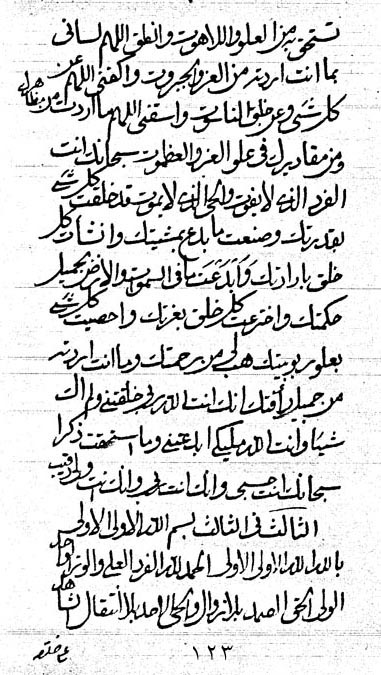 تستحق من العلو واللاهوت وانطق اللهم لسانى
بما انت اردته من العز والجبروت واكفنى اللهم عن
كل شئ وعن خلق الناسوت واسقنى اللهم ما اردت من
ومن مقاديرك فى علو العز والعظموت سبحانك انت
الفرد الذى لا يفوت والحى الذى لا يموت قد خلقت كل شئ
بقدرتك وصنعت ما بدع بمشيتك وانشات كل
خلق بارادتك وابدعت ما فى السموات والارض بجميل
حكمتك واخترعت كل خلق بعزتك واحصيت كل شئ
بعلو ربوبيتك هب لى من رحمتك وما انت اردته
من جميل رأفتك انك انت الله ربى خلقتنى ولم اك
شيئا وانت الله مليكى ابدعتنى وما استحققت ذكرا
سبحانك انت حسبى وانك انت وانك انت
الثالث فى الثالث بسم الله الاولى الاولى
بالله الله الاولى الاولى الحمد لله الفرد العلى والوتر
الولى الحق الصمد بلا زوال والحى الاحد بلا انتقال
١٢٣